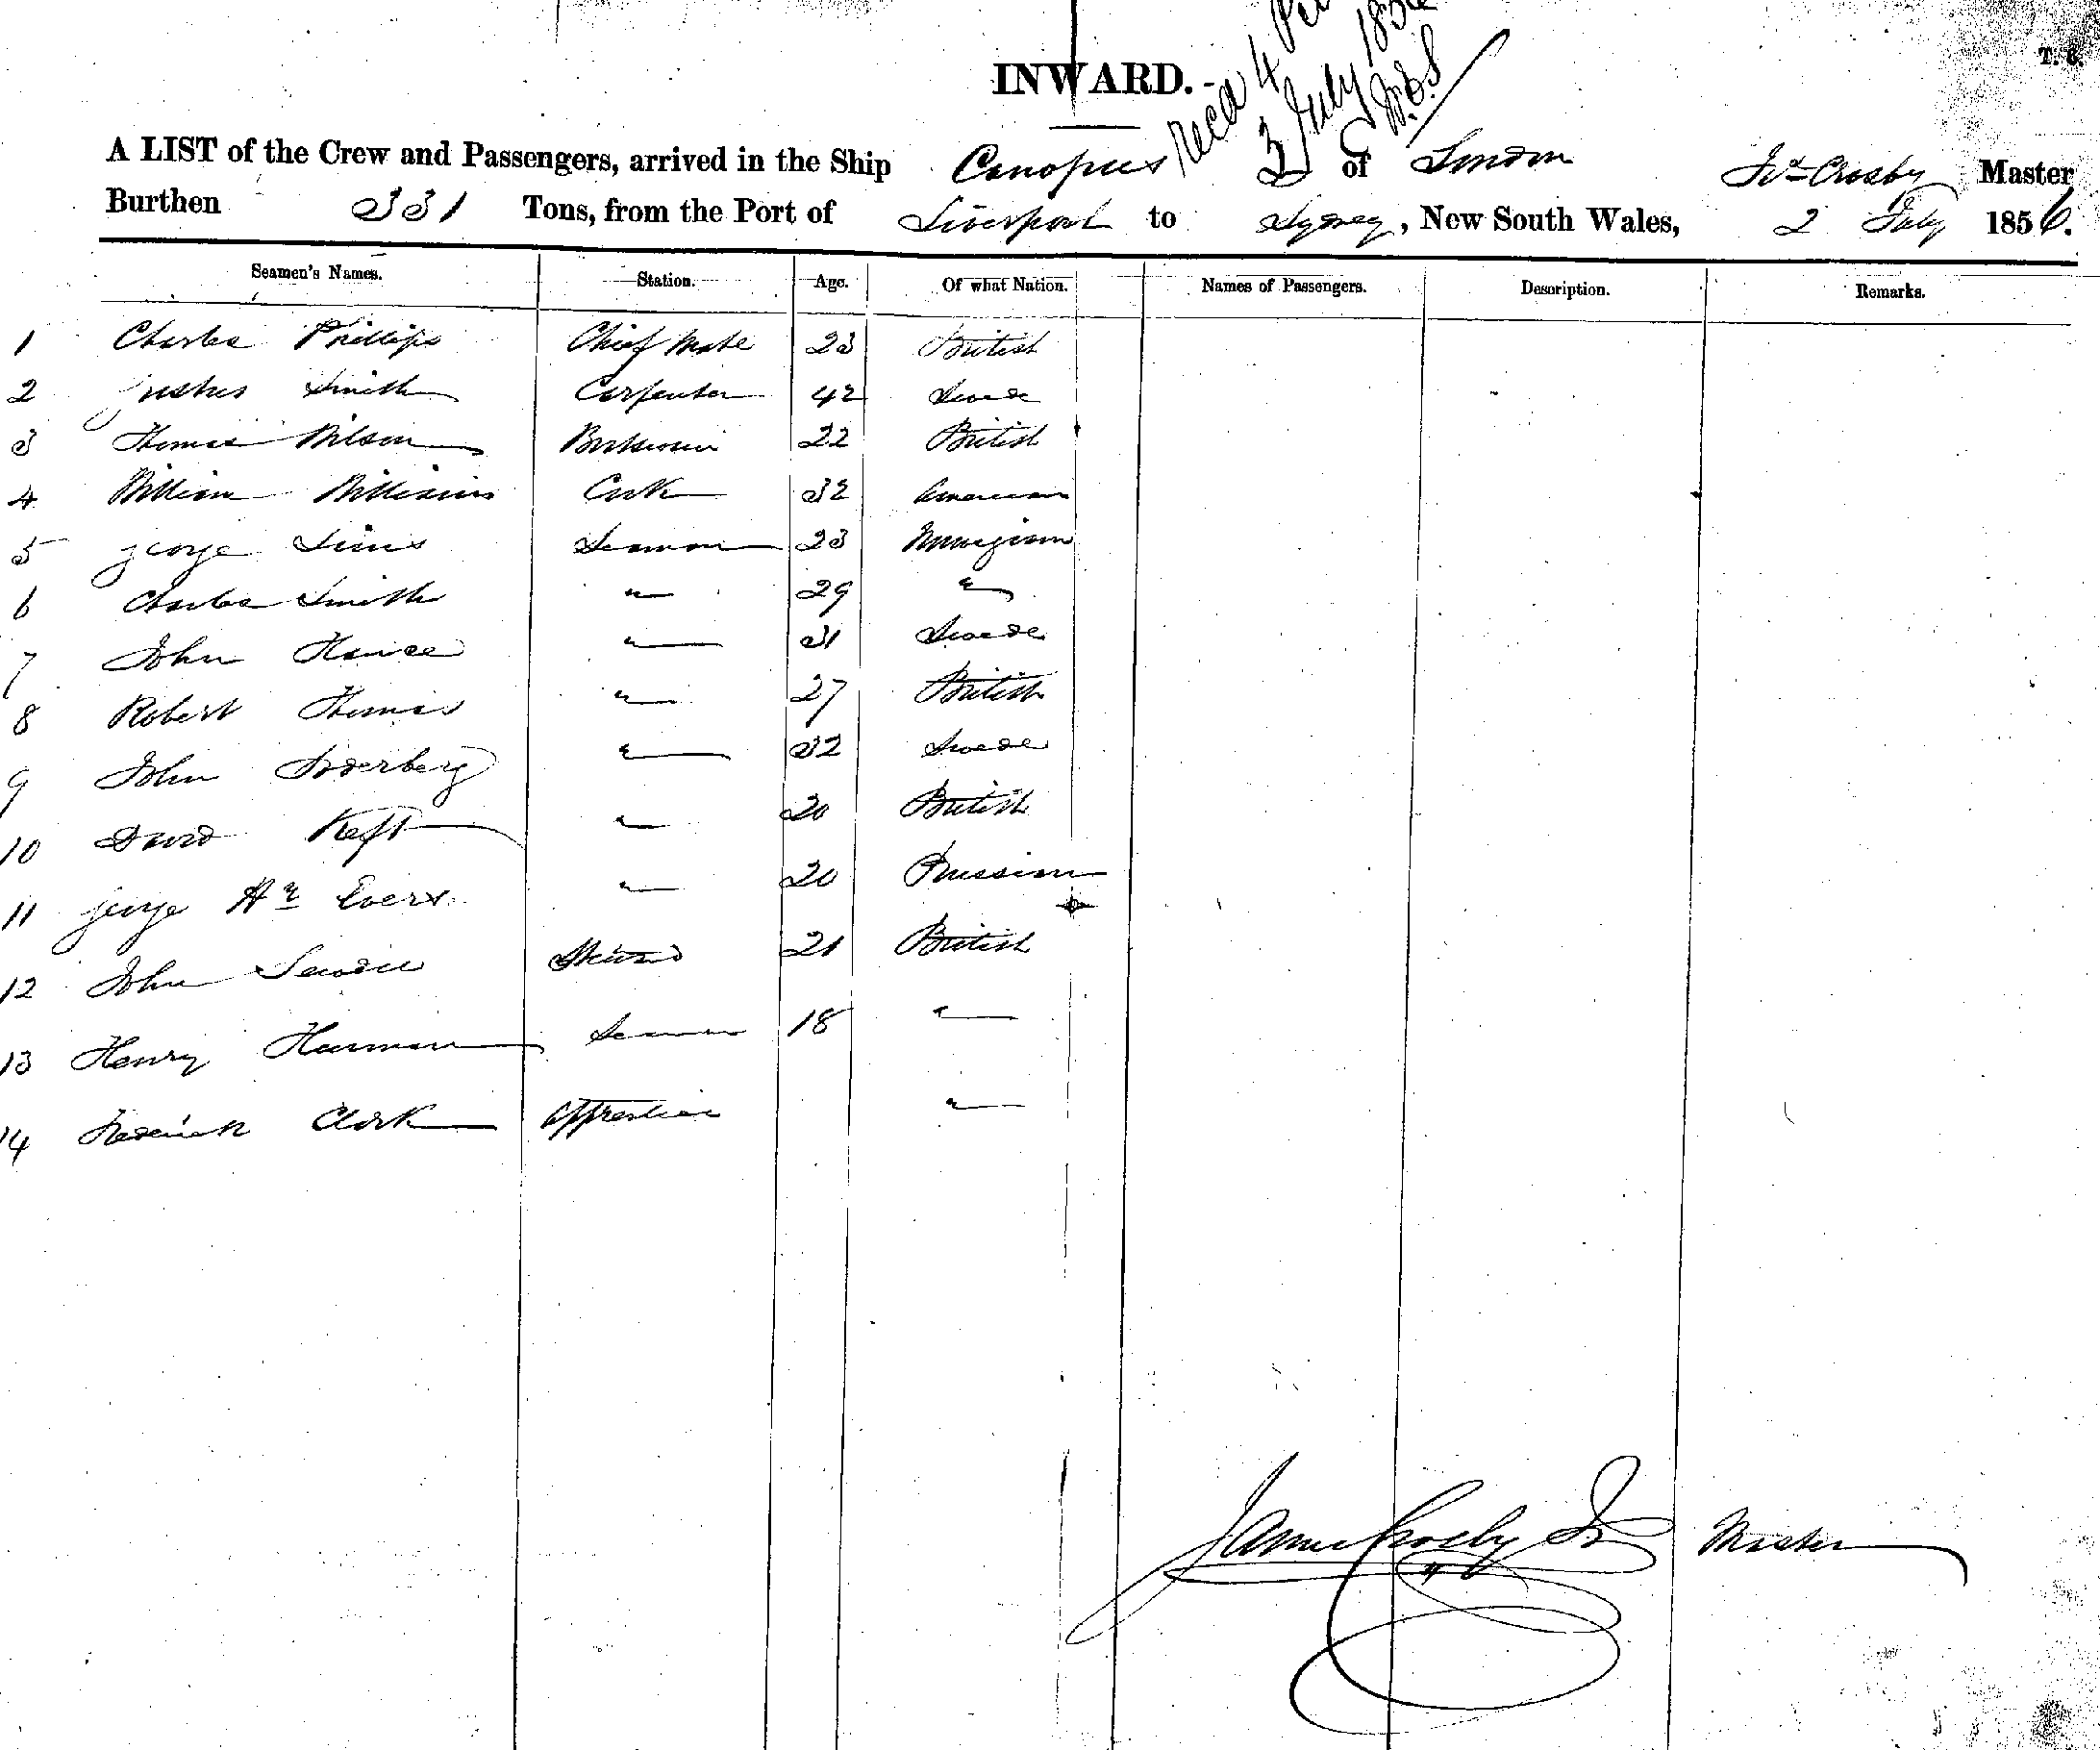 T. 6.
INWARD.
Recd 4
3 July 185
A LIST of the Crew and Passengers, arrived in the Ship Canopus of London Jas Crosby Master
Burthen 331 Tons, from the Port of Liverpool to Sydney, New South Wales, 2 July 1856.
Seamen's Names. Station. Age. Of what Nation. Names of Passengers. Description. Remarks.
1 Charles Phillips Chief Mate 23 British
2 Smith Carpenter 42 Swede
3 Thomas Wilson Boatswain 22 British
4 William Williams Cook 32 American
5 George Sims Seaman 23 Norwegian
6 Charles Smith " 29 "
7 John " 31 Swede
8 Robert Thomas " 27 British
9 John Soderberg " 32 Swede
10 David Keft " 20 British
11 George Hy Evers " 20 Prussian
12 John Steward 21 British
13 Henry Harman Seaman 18 "
14 Frederick Clark Apprentice "
James Crosby Jr Master